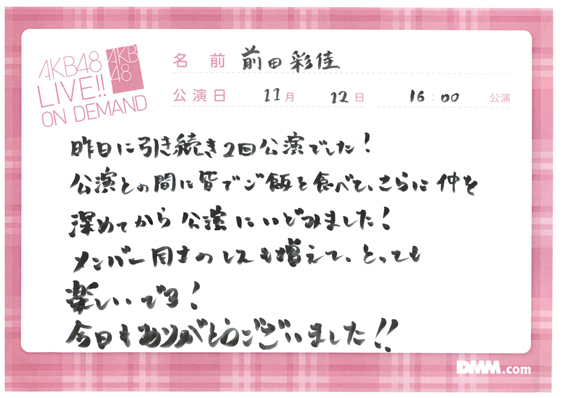 AKB48
LIVE!!
ON DEMAND
AKB
48
名 前 前田 彩佳
公演日 11月 12日 16:00 公演
昨日に引き続き2回公演でした!
公演との間に皆でご飯を食べて、さらに仲を
深めてから公演にいどみました!
メンバー同士のレスも増えて、とっても
楽しいです!
今日もありがとうございました!!
DMM.com